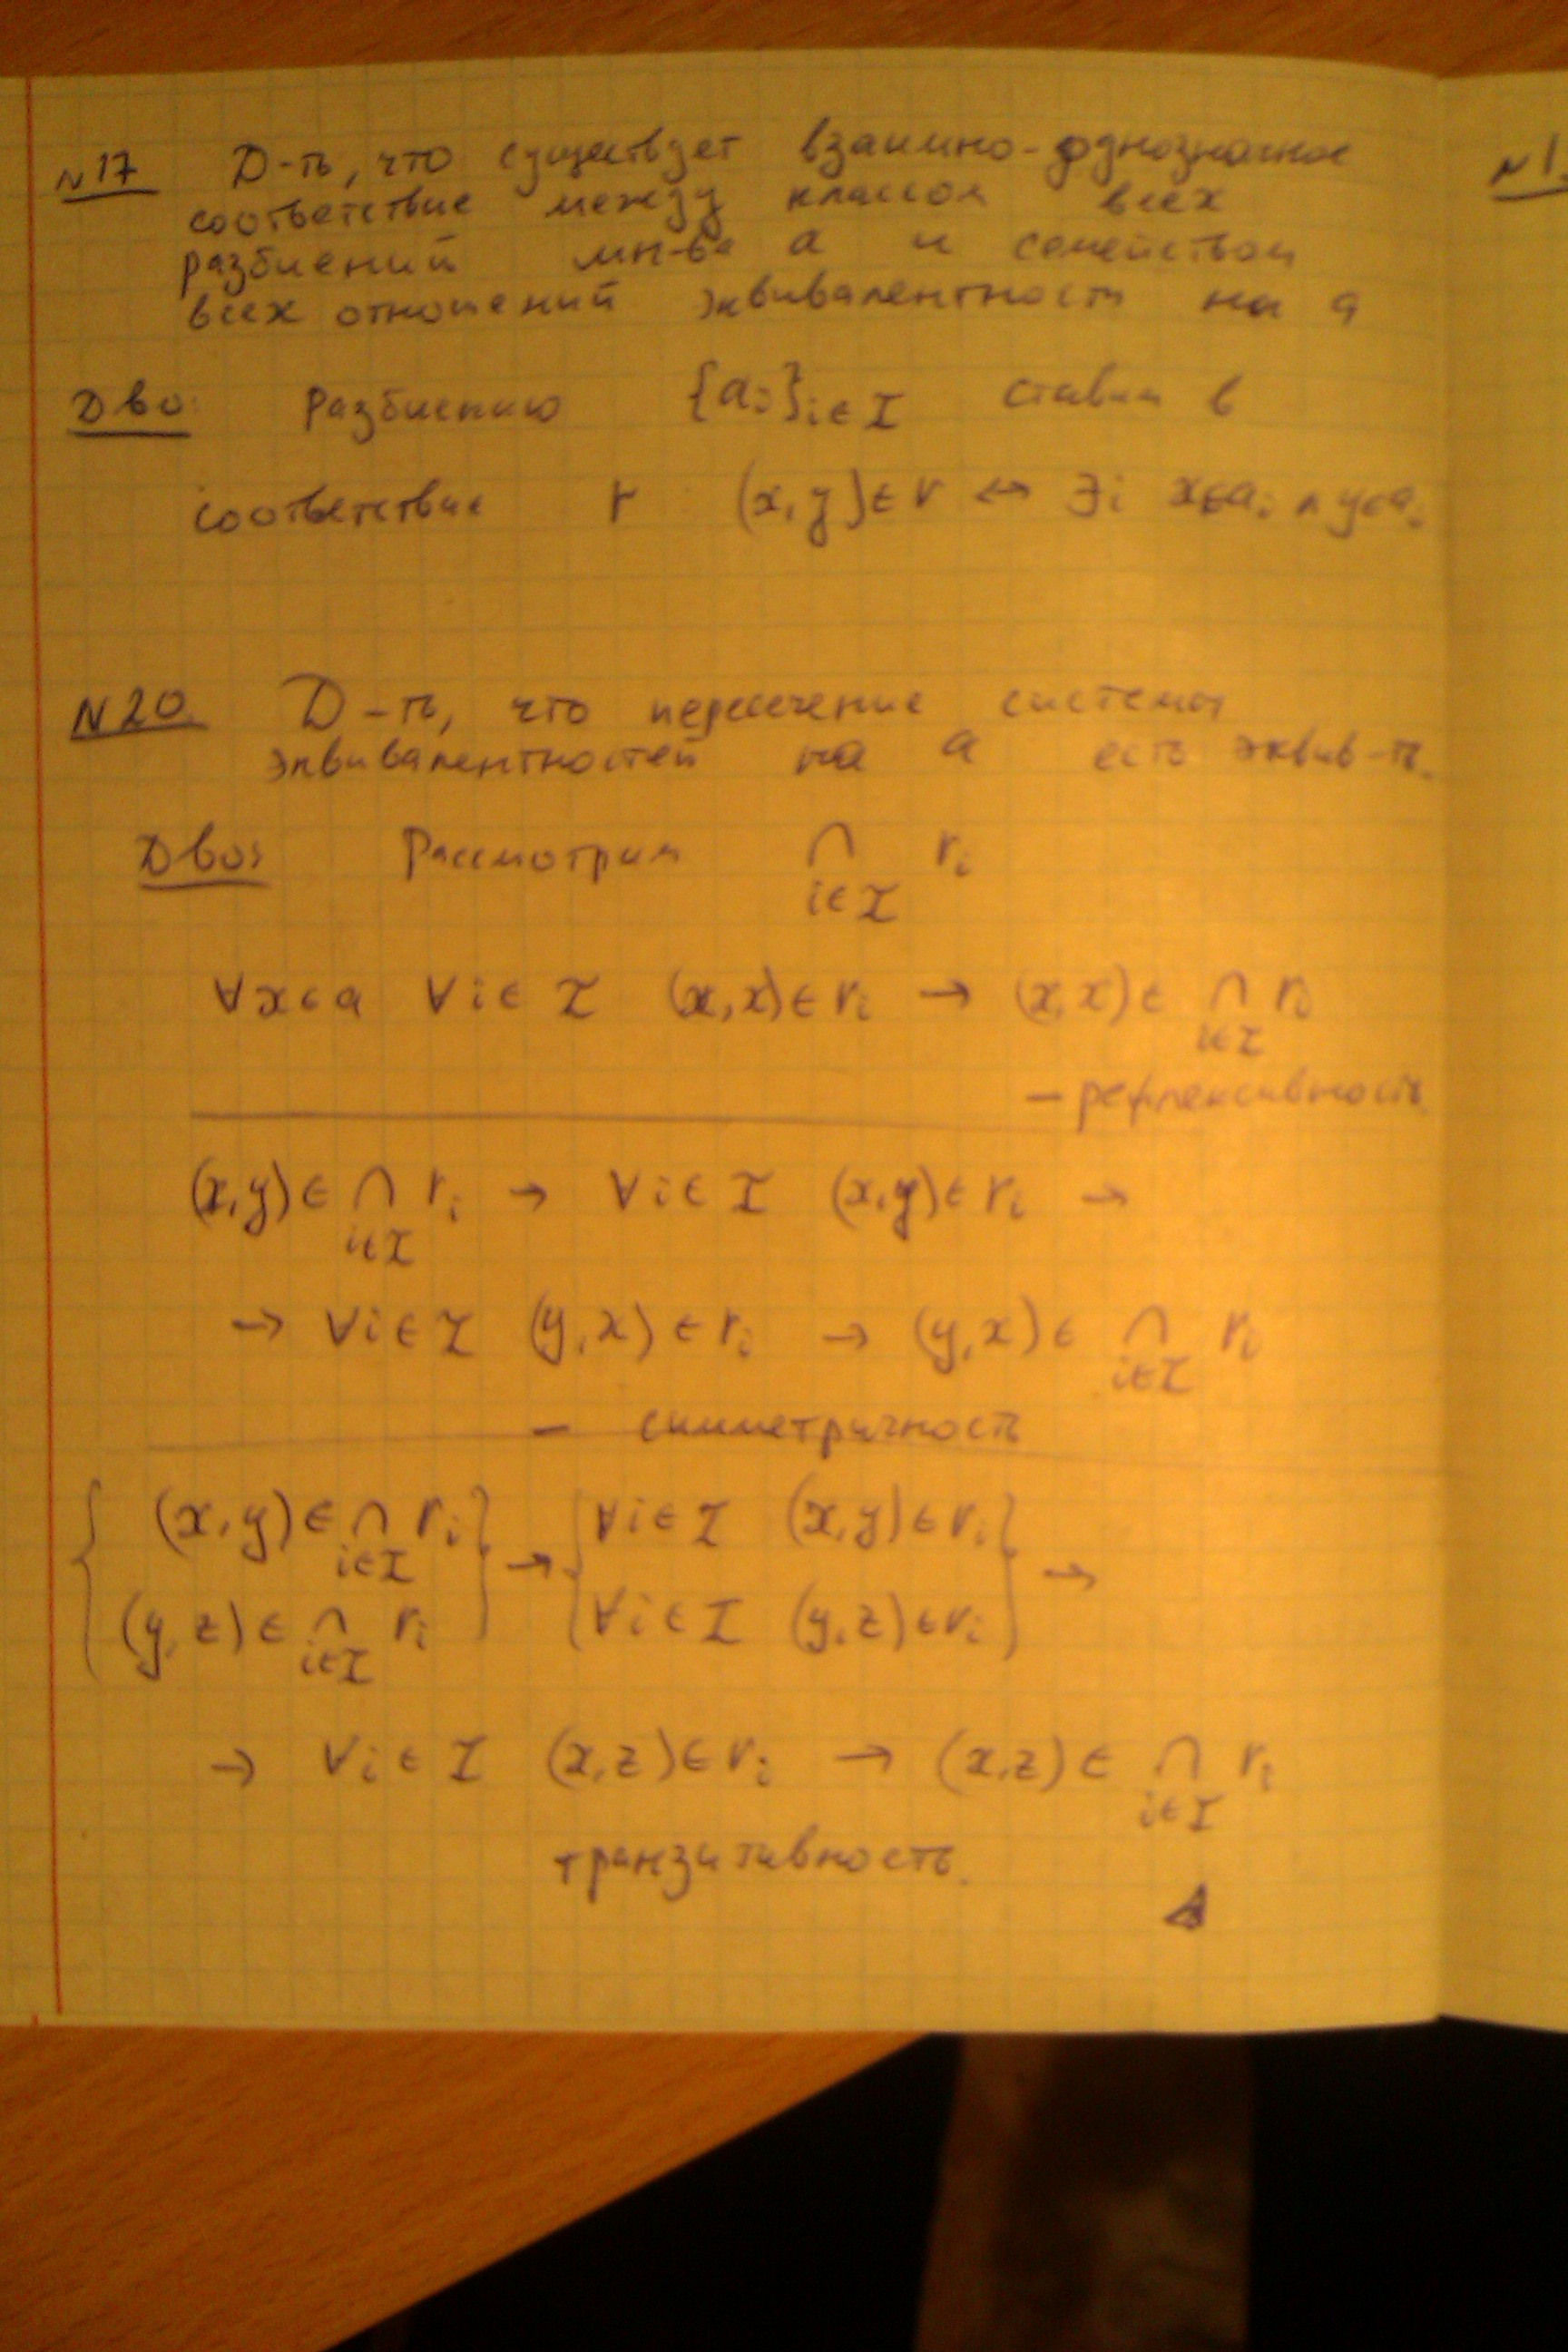 N17 Д-ть, что существует взаимно-однозначное
соответствие между классом всех
разбиений мн-ва a и семейством
всех отношений эквивалентности на a
Д-во: Разбиению {aᵢ}ᵢ∈I ставим в
соответствие r (x,y)∈r ↔ ∃i x∈aᵢ ∧ y∈aᵢ
N1
N20. Д-ть, что пересечение системы
эквивалентностей на a есть эквив-ть.
Д-во: Рассмотрим ∩ rᵢ
i∈I
∀x∈a ∀i∈I (x,x)∈rᵢ → (x,x)∈ ∩ rᵢ
i∈I
— рефлексивность
(x,y)∈ ∩ rᵢ → ∀i∈I (x,y)∈rᵢ →
i∈I
→ ∀i∈I (y,x)∈rᵢ → (y,x)∈ ∩ rᵢ
i∈I
— симметричность
{ (x,y)∈ ∩ rᵢ } → { ∀i∈I (x,y)∈rᵢ } →
i∈I
(y,z)∈ ∩ rᵢ ∀i∈I (y,z)∈rᵢ
i∈I
→ ∀i∈I (x,z)∈rᵢ → (x,z)∈ ∩ rᵢ
i∈I
транзитивность.